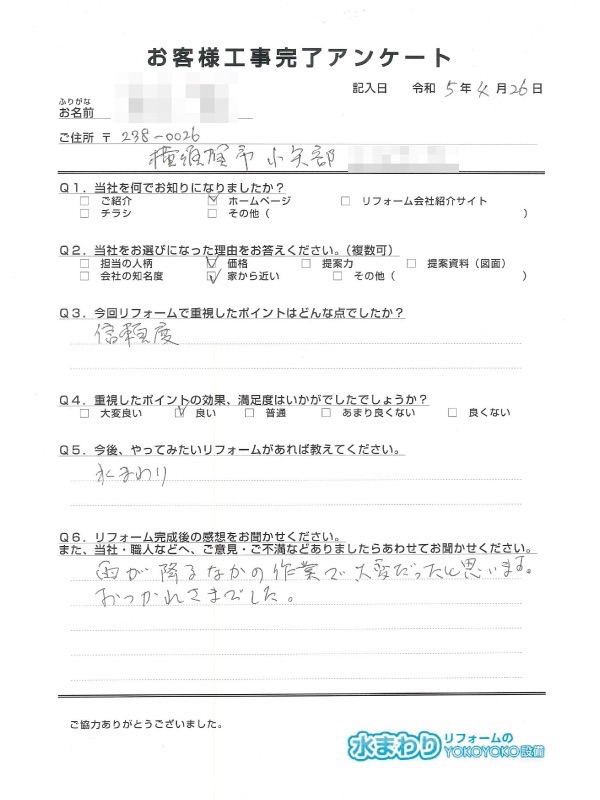 お客様工事完了アンケート
記入日 令和 5年 4月 26日
ふりがな
お名前
ご住所 〒 238-0026
横須賀市 小矢部
Q1．当社を何でお知りになりましたか？
□ ご紹介 ☑ ホームページ □ リフォーム会社紹介サイト
□ チラシ □ その他（ ）
Q2．当社をお選びになった理由をお答えください。（複数可）
□ 担当の人柄 ☑ 価格 □ 提案力 □ 提案資料（図面）
□ 会社の知名度 ☑ 家から近い □ その他（ ）
Q3．今回リフォームで重視したポイントはどんな点でしたか？
信頼度
Q4．重視したポイントの効果、満足度はいかがでしたでしょうか？
□ 大変良い ☑ 良い □ 普通 □ あまり良くない □ 良くない
Q5．今後、やってみたいリフォームがあれば教えてください。
水まわり
Q6．リフォーム完成後の感想をお聞かせください。
また、当社・職人などへ、ご意見・ご不満などありましたらあわせてお聞かせください。
雨が降るなかの作業で大変だったと思います。
おつかれさまでした。
ご協力ありがとうございました。
水まわり リフォームの YOKOYOKO設備